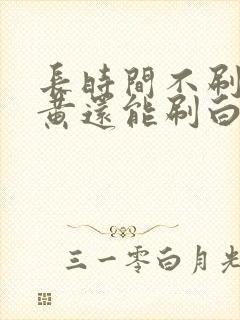 長時間不刷
黃還能刷白
三一零白月光